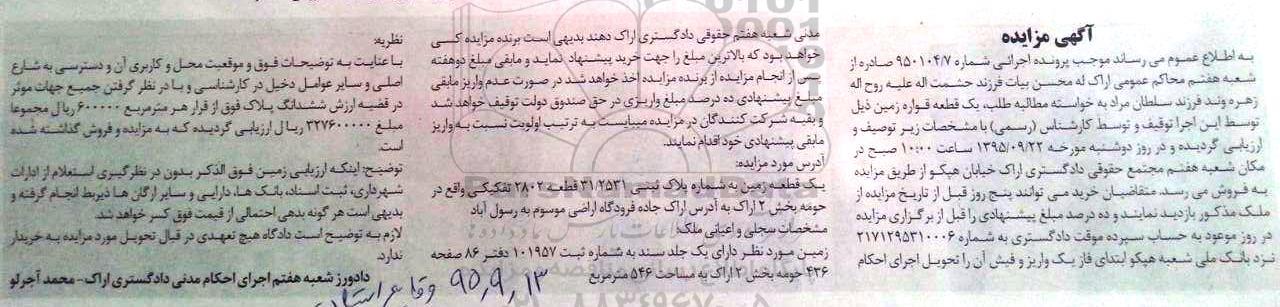 آگهی مزایده
به اطلاع عموم می رساند موجب پرونده اجرائی شماره ۹۵۰۱۰۴/۷ صادره از
شعبه هفتم محاکم عمومی اراک له محسن بیات فرزند حشمت اله علیه روح اله
زهره وند فرزند سلطان مراد به خواسته مطالبه طلب، یک قطعه قواره زمین ذیل
توسط این اجرا توقیف و توسط کارشناس (رسمی) با مشخصات زیر توصیف و
ارزیابی گردیده و در روز دوشنبه مورخه ۱۳۹۵/۰۹/۲۲ ساعت ۱۰:۰۰ صبح در
مکان شعبه هفتم مجتمع حقوقی دادگستری اراک خیابان هپکو از طریق مزایده
به فروش می رسد. متقاضیان خرید می توانند پنج روز قبل از تاریخ مزایده از
ملک مذکور بازدید نمایند و ده درصد مبلغ پیشنهادی را قبل از برگزاری مزایده
در روز موعود به حساب سپرده موقت دادگستری به شماره ۲۱۷۱۲۹۵۳۱۰۰۰۶
نزد بانک ملی شعبه هپکو ابتدای فاز یک واریز و فیش آن را تحویل اجرای احکام
مدنی شعبه هفتم حقوقی دادگستری اراک دهند بدیهی است برنده مزایده کسی
خواهد بود که بالاترین مبلغ را جهت خرید پیشنهاد نماید و مابقی مبلغ دو هفته
پس از انجام مزایده از برنده مزایده اخذ خواهد شد در صورت عدم واریز مابقی
مبلغ پیشنهادی ده درصد مبلغ واریزی در حق صندوق دولت توقیف خواهد شد
و بقیه شرکت کنندگان در مزایده میبایست به ترتیب اولویت نسبت به واریز
مابقی پیشنهادی خود اقدام نمایند.
آدرس مورد مزایده:
یک قطعه زمین به شماره پلاک ثبتی ۳۱/۲۵۳۱ قطعه ۲۸۰۲ تفکیکی واقع در
حومه بخش ۲ اراک به آدرس اراک جاده فرودگاه اراضی موسوم به رسول آباد
مشخصات سجلی و اعیانی ملک:
زمین مورد نظر دارای یک جلد سند به شماره ثبت ۱۰۱۹۵۷ دفتر ۸۶ صفحه
۴۳۶ حومه بخش ۲ اراک به مساحت ۵۴۶ مترمربع
نظریه:
با عنایت به توضیحات فوق و موقعیت محل و کاربری آن و دسترسی به شارع
اصلی و سایر عوامل دخیل در کارشناسی و با در نظر گرفتن جمیع جهات موثر
در قضیه ارزش ششدانگ پلاک فوق از قرار هر مترمربع ۶۰۰۰۰۰ ریال مجموعا
مبلغ ۳۲۷۶۰۰۰۰۰ ریال ارزیابی گردیده که به مزایده و فروش گذاشته شده
است.
توضیح: اینکه ارزیابی زمین فوق الذکر بدون در نظر گیری استعلام از ادارات
شهرداری، ثبت اسناد، بانک ها، دارایی و سایر ارگان ها ذیربط انجام گرفته و
بدیهی است هر گونه بدهی احتمالی از قیمت فوق کسر خواهد شد.
لازم به توضیح است دادگاه هیچ تعهدی در قبال تحویل مورد مزایده به خریدار
ندارد.
دادورز شعبه هفتم اجرای احکام مدنی دادگستری اراک- محمد آجرلو
۹۵,۹,۱۳